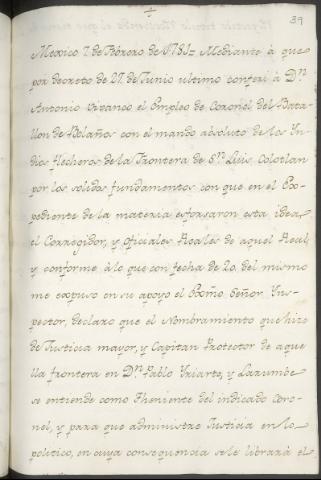 39
Mexico 7. de Febrero de 1781= Mediante â que
por decreto de 27. de Junio ultimo conferi â Dn.
Antonio Vivanco el Empleo de Coronel del Bata-
llon de Bolaños con el mando absoluto de los Yn-
dios flecheros de la Frontera de Sn. Luis Colotlan
por los solidos fundamentos con que en el Ex-
pediente de la materia esforsaron esta idea,
el Corregidor, y Oficiales Reales de aquel Real
y conforme â lo que con fecha de 20. del mismo
me expuso en su apoyo el Exmo. Señor Yns-
pector, declaro que el Nombramiento que hize
de Justicia mayor, y Capitan Protector de aque
lla frontera en Dn. Pablo Yriarte, y Larumbe
se entiende como Theniente del indicado Coro-
nel, y para que administre Justicia en lo
politico, en cuya consequencia se le librará el